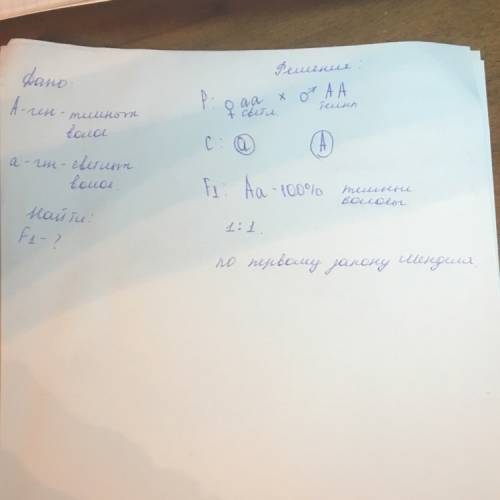 Дано:
А-ген-темных
волос
а-ген-светлых
волос.
Найти:
F1-?
Решение:
P: ♀ аа × ♂ АА
светл. темн
G: а А
F1: Аа-100% темные
волосы
1:1.
по первому закону Менделя